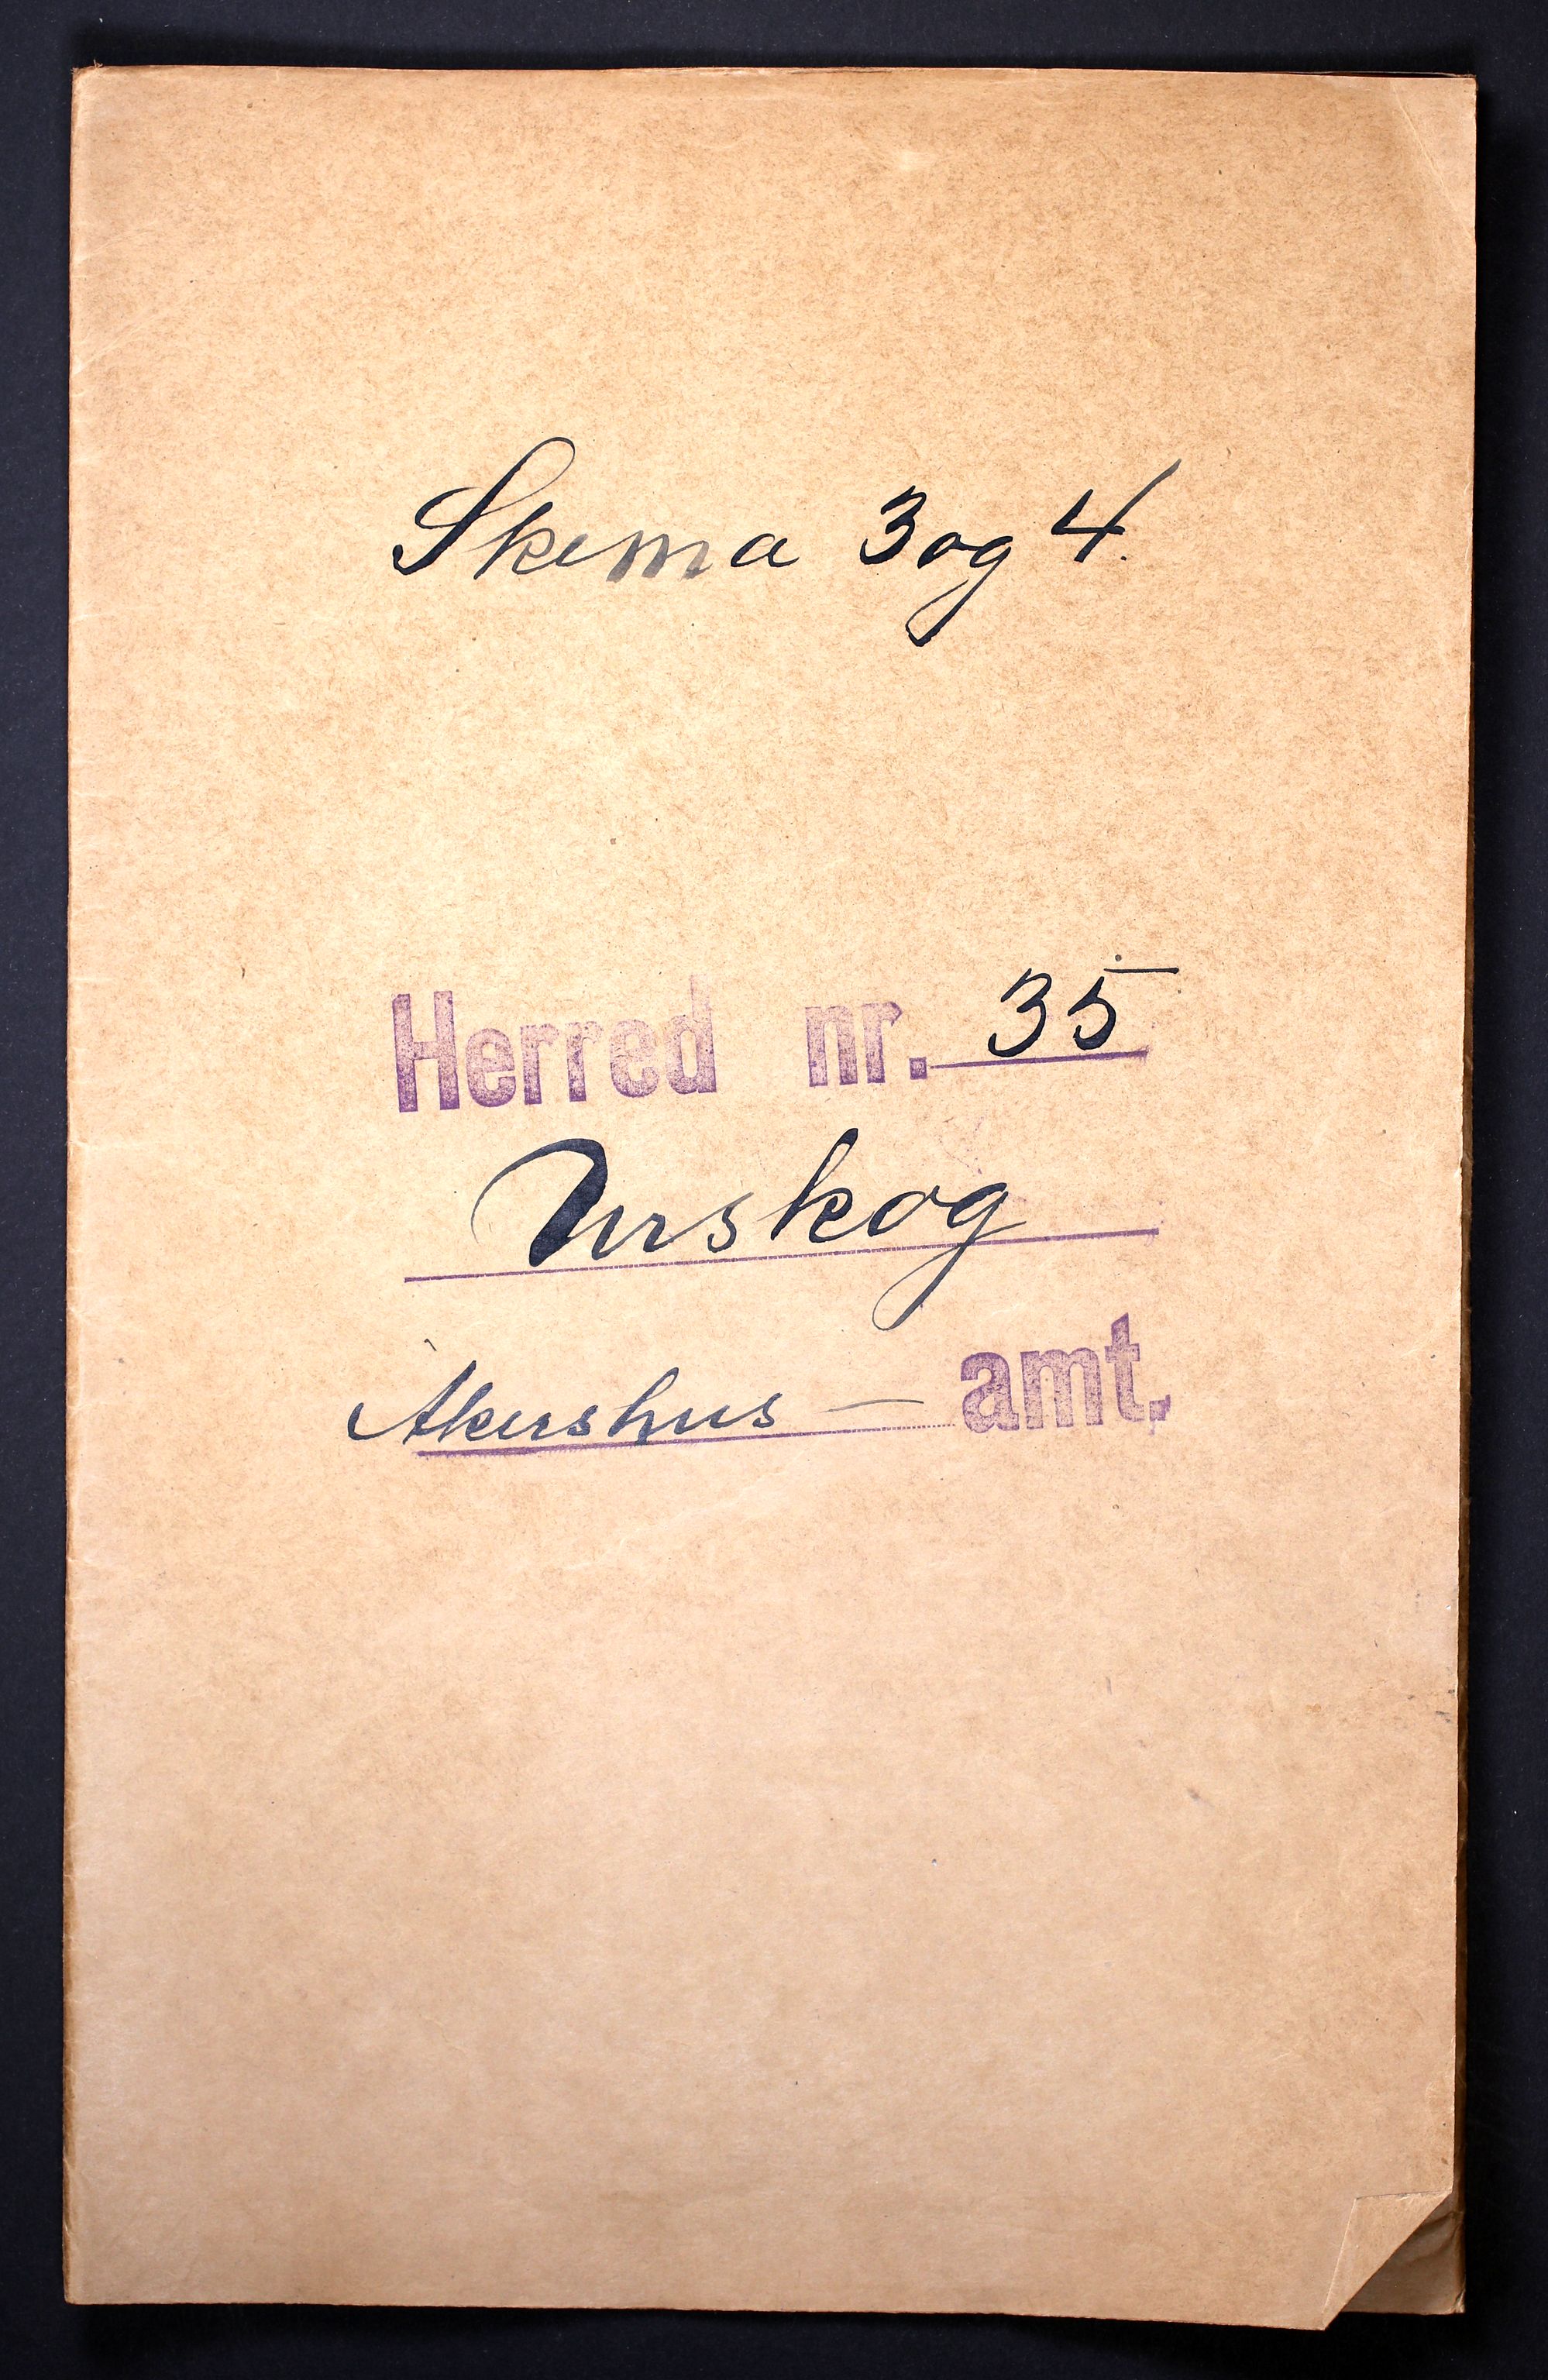 Skema 3 og 4.
Herred nr. 35
Urskog
Akershus – amt.